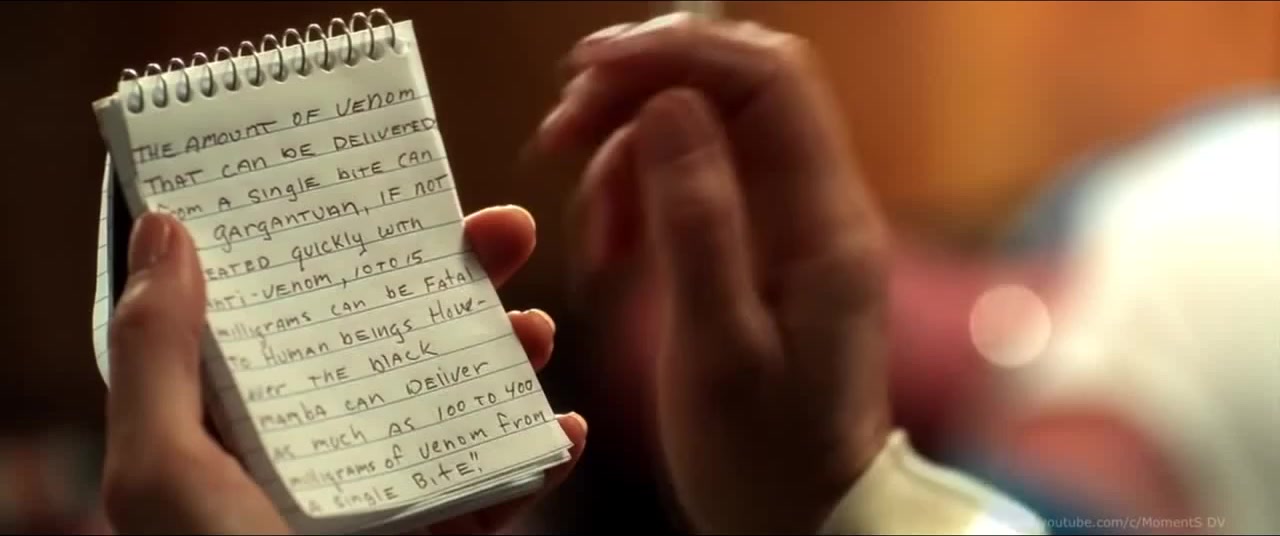 THE AMOUNT OF VENOM
THAT CAN BE DELIVERED
From A Single bite CAN
GARGANTUAN, IF NOT
EATED quickly WITH
NTI-VENOM, 10 TO 15
milligrams CAN be FATAl
To Human beings Howe-
ver THE blACK
mambA CAN DEliver
AS much AS 100 TO 400
milligrams of venom from
A single BITE!!
youtube.com/c/MomentS DV